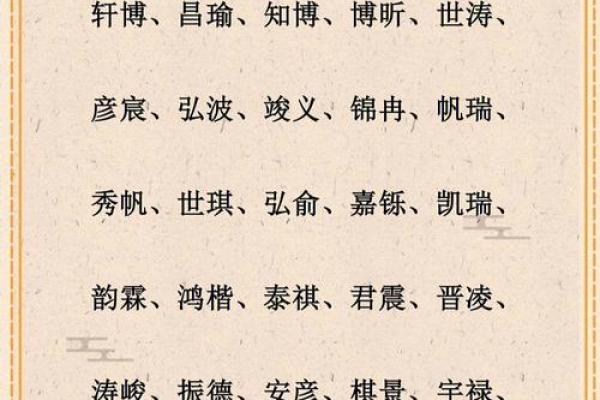 轩博、昌瑜、知博、博昕、世涛、
彦宸、弘波、竣义、锦冉、帆瑞、
秀帆、世琪、弘俞、嘉铄、凯瑞、
韵霖、鸿楷、泰祺、君震、晋凌、
涛峻、振德、安彦、棋景、宇禄、